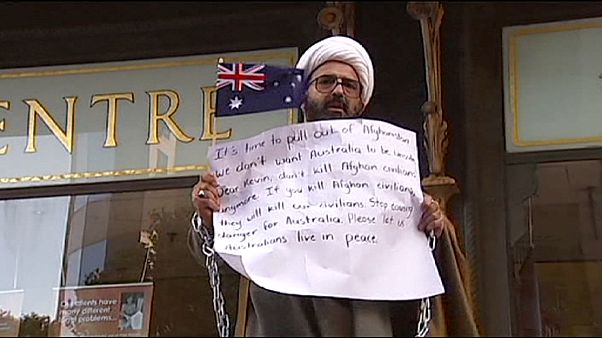 ENTRE
It's time to pull out of Afghanistan
we don't want Australia to be
Dear Kevin, don't kill Afghan civilians
anymore. If you kill Afghan civilians
they will kill our civilians. Stop causing
danger for Australia. Please let us
Australians live in peace.
Our patients have many
different
legal problems...